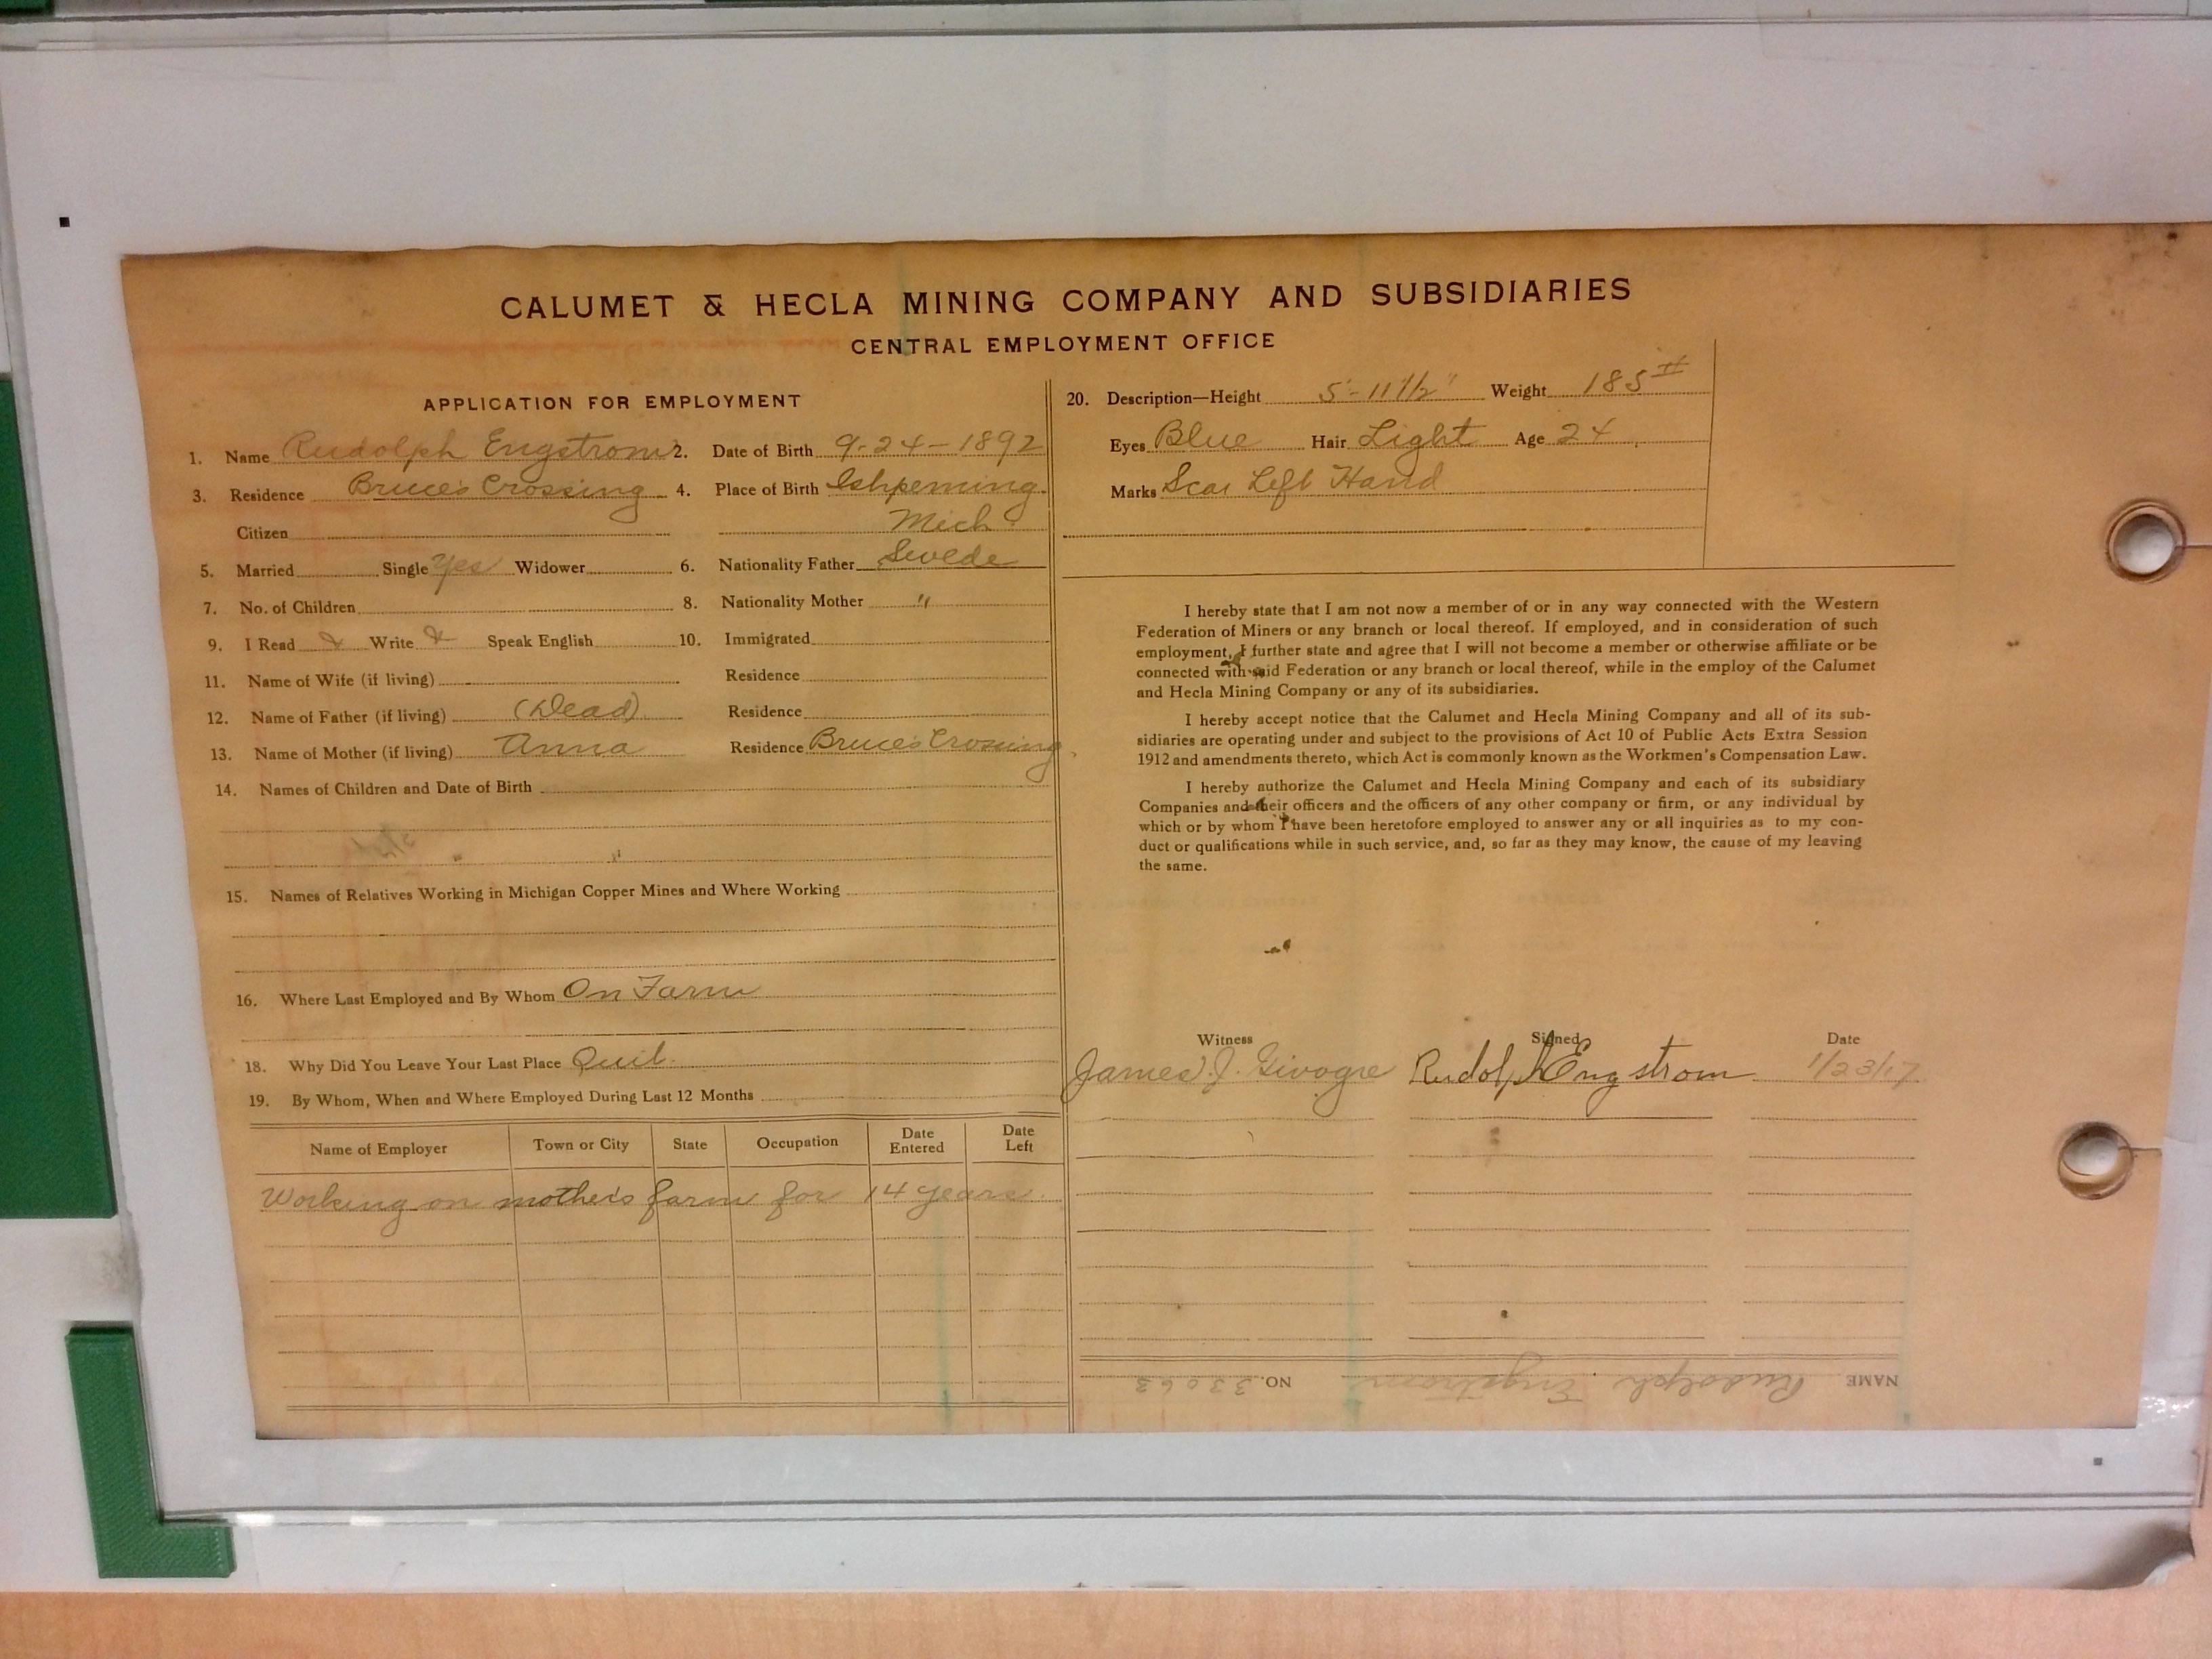 CALUMET & HECLA MINING COMPANY AND SUBSIDIARIES
CENTRAL EMPLOYMENT OFFICE
APPLICATION FOR EMPLOYMENT
1. Name Rudolph Engstrom 2. Date of Birth 9-24-1892
3. Residence Bruce's Crossing 4. Place of Birth Ishpeming
Citizen Mich
5. Married Single Yes Widower 6. Nationality Father Swede
7. No. of Children 8. Nationality Mother "
9. I Read & Write & Speak English 10. Immigrated
11. Name of Wife (if living) Residence
12. Name of Father (if living) (Dead) Residence
13. Name of Mother (if living) Anna Residence Bruce's Crossing
14. Names of Children and Date of Birth
15. Names of Relatives Working in Michigan Copper Mines and Where Working
16. Where Last Employed and By Whom On Farm
18. Why Did You Leave Your Last Place Quit.
19. By Whom, When and Where Employed During Last 12 Months
Name of Employer Town or City State Occupation Date Entered Date Left
Working on mother's farm for 14 years.
20. Description—Height 5'-11 1/2" Weight 185#
Eyes Blue Hair Light Age 24
Marks Scar Left Hand
I hereby state that I am not now a member of or in any way connected with the Western
Federation of Miners or any branch or local thereof. If employed, and in consideration of such
employment, I further state and agree that I will not become a member or otherwise affiliate or be
connected with said Federation or any branch or local thereof, while in the employ of the Calumet
and Hecla Mining Company or any of its subsidiaries.
I hereby accept notice that the Calumet and Hecla Mining Company and all of its sub-
sidiaries are operating under and subject to the provisions of Act 10 of Public Acts Extra Session
1912 and amendments thereto, which Act is commonly known as the Workmen's Compensation Law.
I hereby authorize the Calumet and Hecla Mining Company and each of its subsidiary
Companies and their officers and the officers of any other company or firm, or any individual by
which or by whom I have been heretofore employed to answer any or all inquiries as to my con-
duct or qualifications while in such service, and, so far as they may know, the cause of my leaving
the same.
Witness Signed Date
James J. Rudolph Engstrom 1/23/17
NAME Rudolph Engstrom NO. 33063